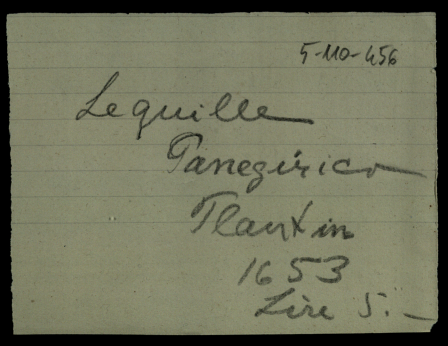 5-110-456
Lequille
Panegirico
Plantin
1653
Lire 5.-